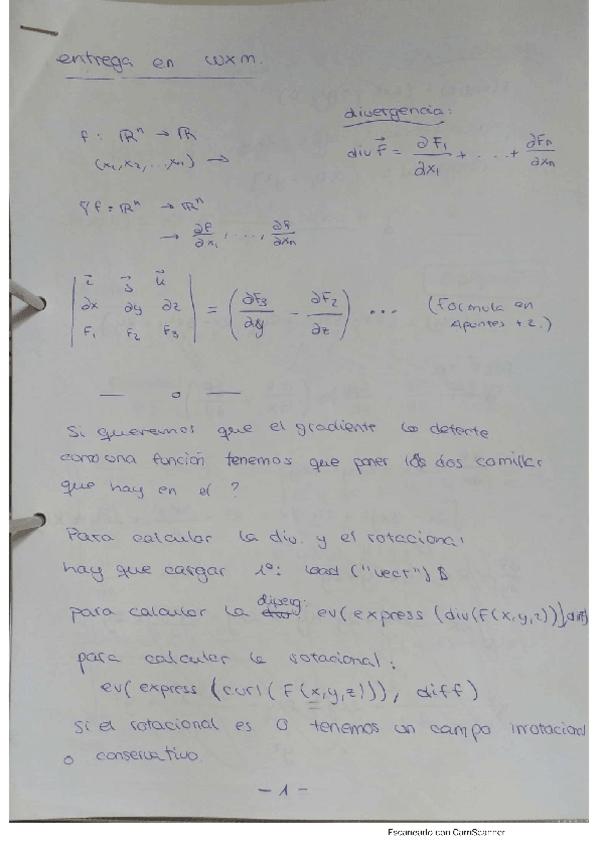 entrega en wxm.
divergencia:
f: ℝⁿ → ℝ
(x₁, x₂, ..., xₙ) →
div F⃗ = ∂F₁/∂x₁ + ... + ∂Fₙ/∂xₙ
∇f: ℝⁿ → ℝⁿ
→ ∂f/∂x₁, ..., ∂f/∂xₙ
| i⃗ j⃗ k⃗ |
| ∂x ∂y ∂z | = (∂F₃/∂y − ∂F₂/∂z) ... (Fórmula en
| F₁ F₂ F₃ | Apuntes t 2.)
— o —
Si queremos que el gradiente lo detecte
como una función tenemos que poner las dos comillas
que hay en el ?
Para calcular la div. y el rotacional
hay que cargar 1º: load ("vect") $
para calcular la diverg: ev(express (div(F(x,y,z))),diff)
para calcular le rotacional:
ev(express (curl(F(x,y,z))), diff)
Si el rotacional es 0 tenemos un campo irrotacional
o conservativo
- 1 -
Escaneado con CamScanner